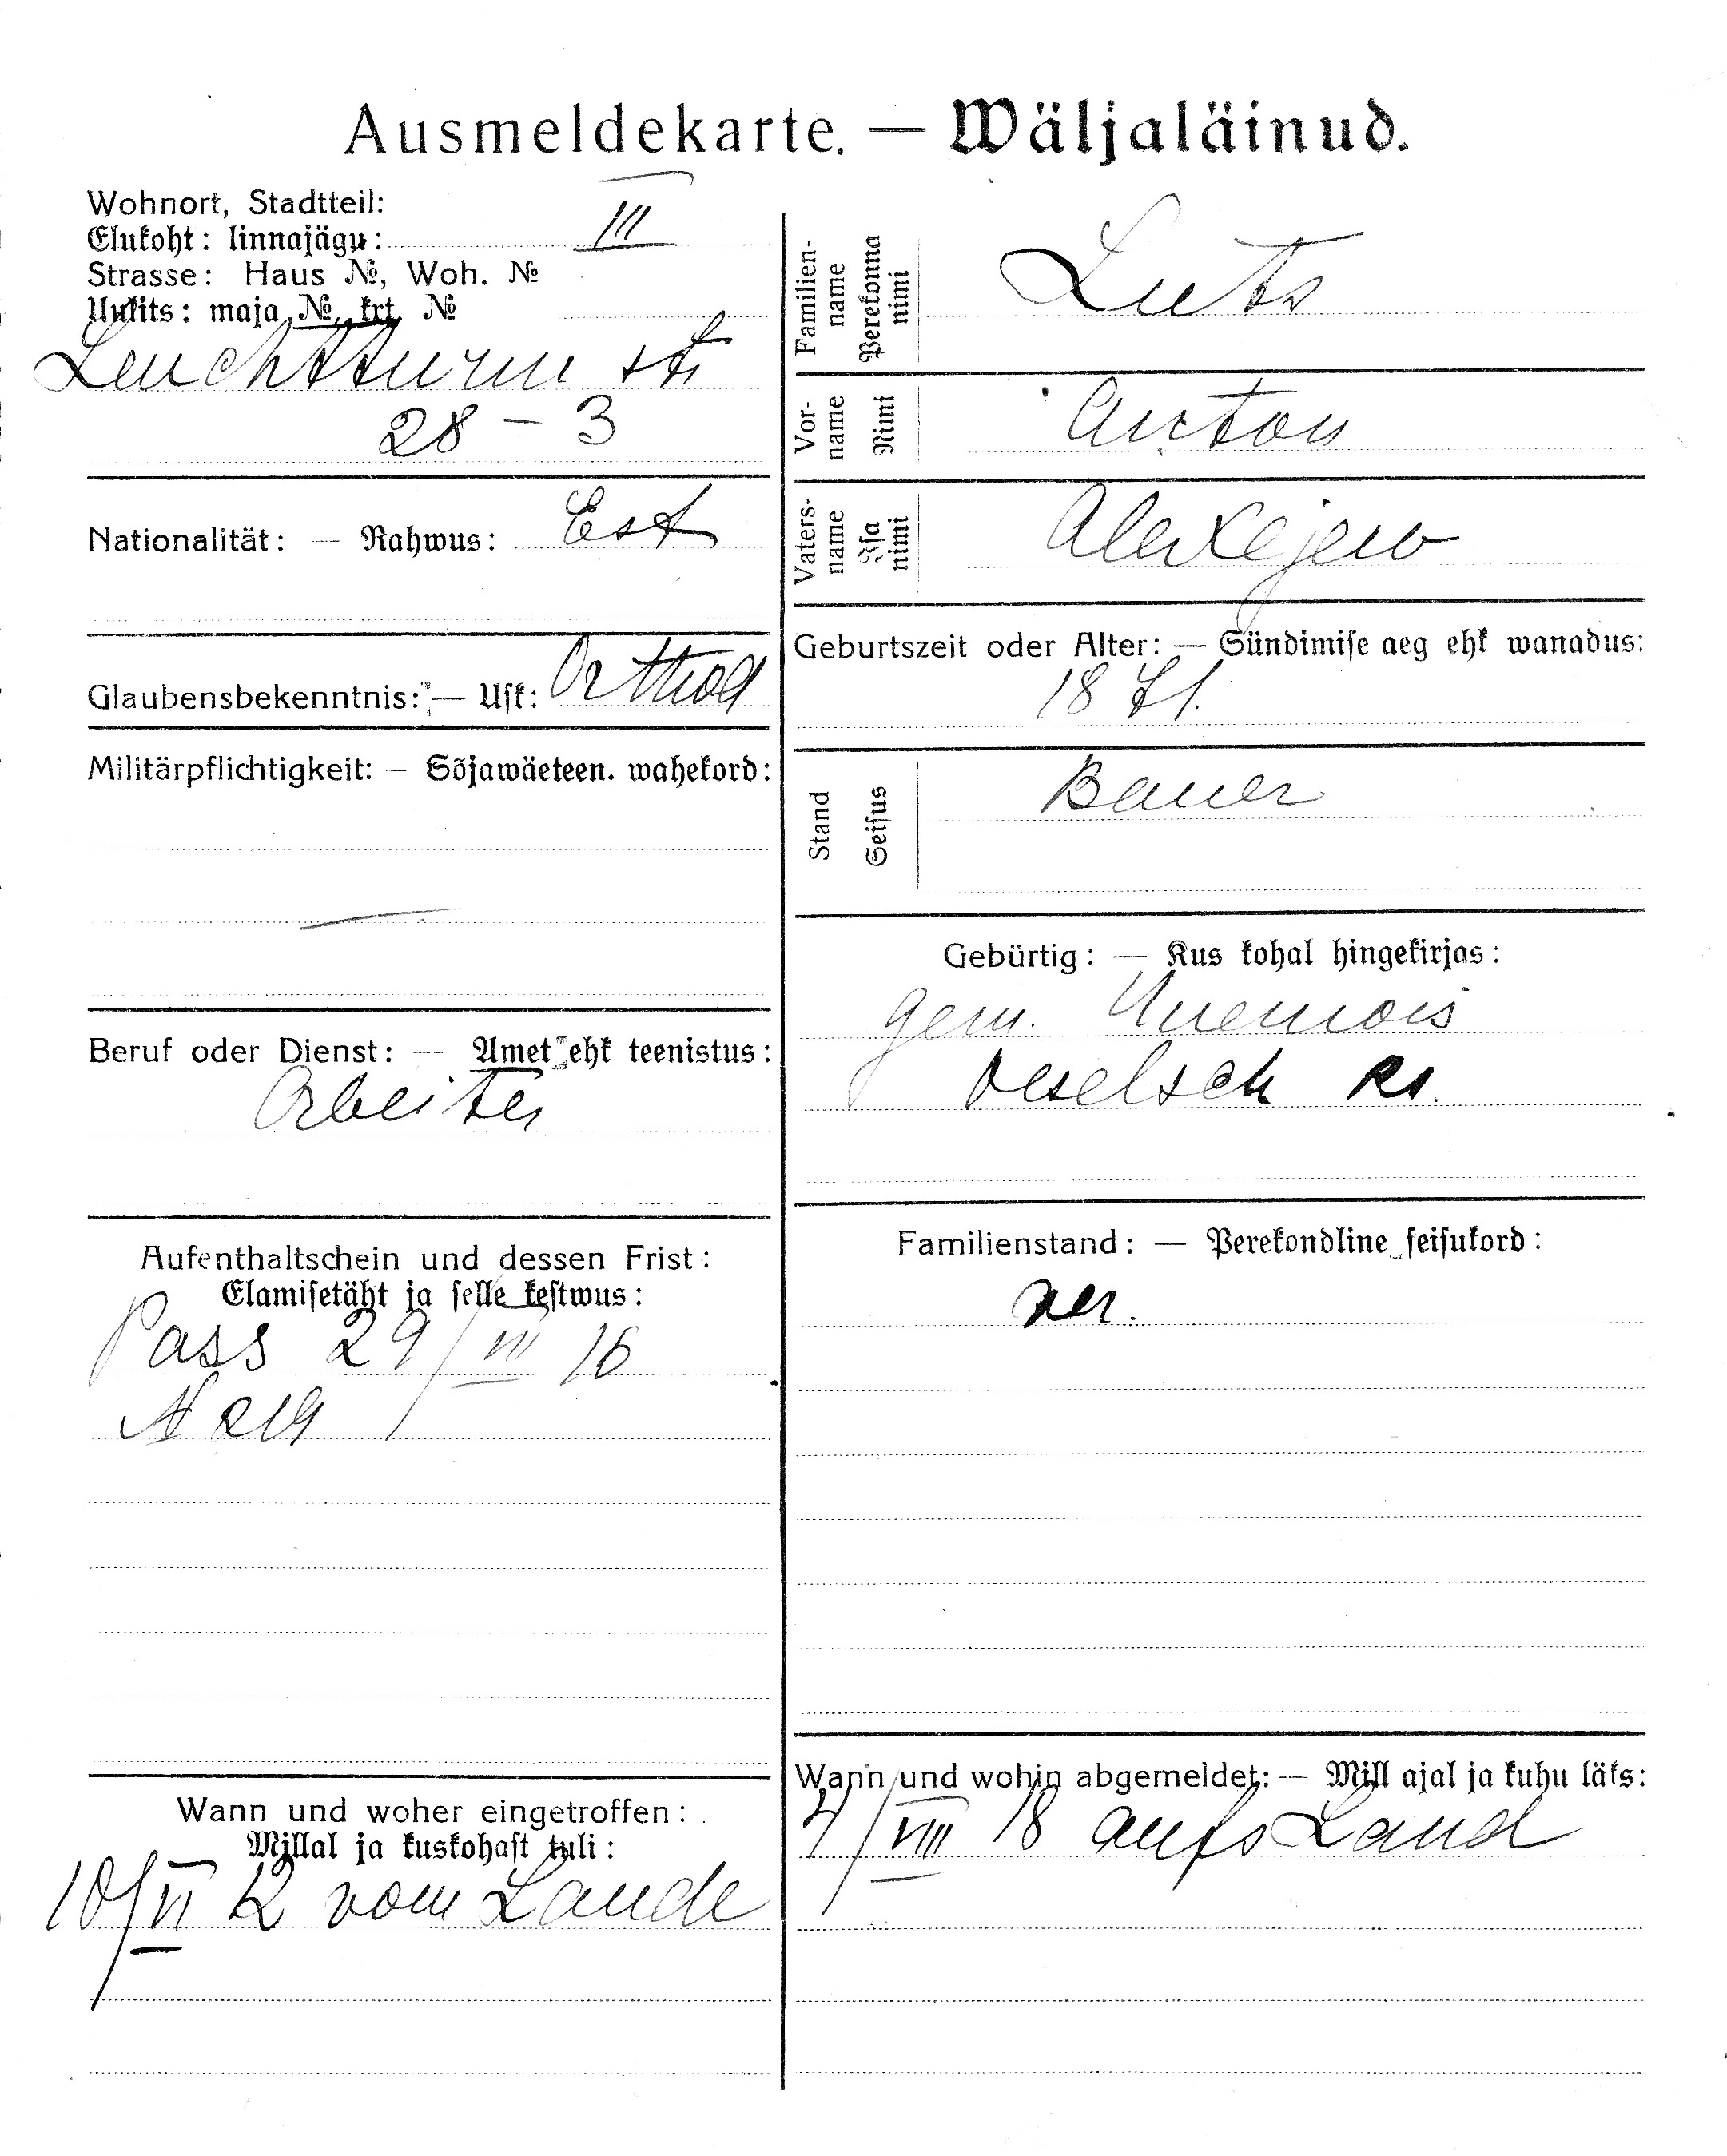 Ausmeldekarte. — Wäljaläinud.
Wohnort, Stadtteil:
Elukoht: linnajägu: III
Strasse: Haus №, Woh. №
Uulits: maja №, krt. №
Leuchtturm str
28 – 3
Nationalität: — Rahwus: Est
Glaubensbekenntnis: — Usk: Orthod
Militärpflichtigkeit: — Sõjawäeteen. wahekord:
—
Beruf oder Dienst: — Amet ehk teenistus:
Arbeiter
Aufenthaltschein und dessen Frist:
Elamisetäht ja selle kestwus:
Pass 29/VII 16
N 219
Wann und woher eingetroffen:
Millal ja kuskohast tuli:
10/VI 12 vom Lande
Familien-
name
Perekonna
nimi
Luts
Vor-
name
Nimi
Anton
Vaters-
name
Isa
nimi
Alexejew
Geburtszeit oder Alter: — Sündimise aeg ehk wanadus:
1871.
Stand
Seisus
Bauer
Gebürtig: — Kus kohal hingekirjas:
gem. Uuemois
Oeselsch Kr.
Familienstand: — Perekondline seisukord:
ver.
Wann und wohin abgemeldet: — Mill ajal ja kuhu läks:
4/VIII 18 aufs Land